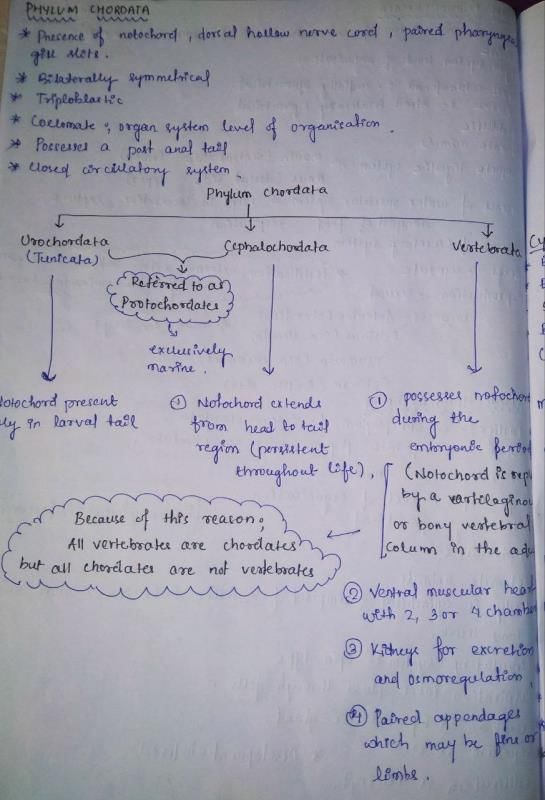 PHYLUM CHORDATA
* Presence of notochord, dorsal hollow nerve cord, paired pharyngea
gill slits.
* Bilaterally symmetrical
* Triploblastic
* Coelomate ; organ system level of organisation.
* Possesses a post anal tail
* closed circulatory system.
Phylum chordata
Urochordata
(Tunicata)
Cephalochordata
Vertebrata
Referred to as
Protochordates
exclusively
marine.
Notochord present
ly in larval tail
① Notochord extends
from head to tail
region (persistent
throughout life),
① possesses notochord
during the
embryonic period
(Notochord is repl
by a cartilaginou
or bony vertebral
column in the adu
Because of this reason;
All vertebrates are chordates
but all chordates are not vertebrates
② Ventral muscular heart
with 2, 3 or 4 chamber
③ Kidneys for excretion
and osmoregulation,
④ Paired appendages
which may be fins or
limbs.